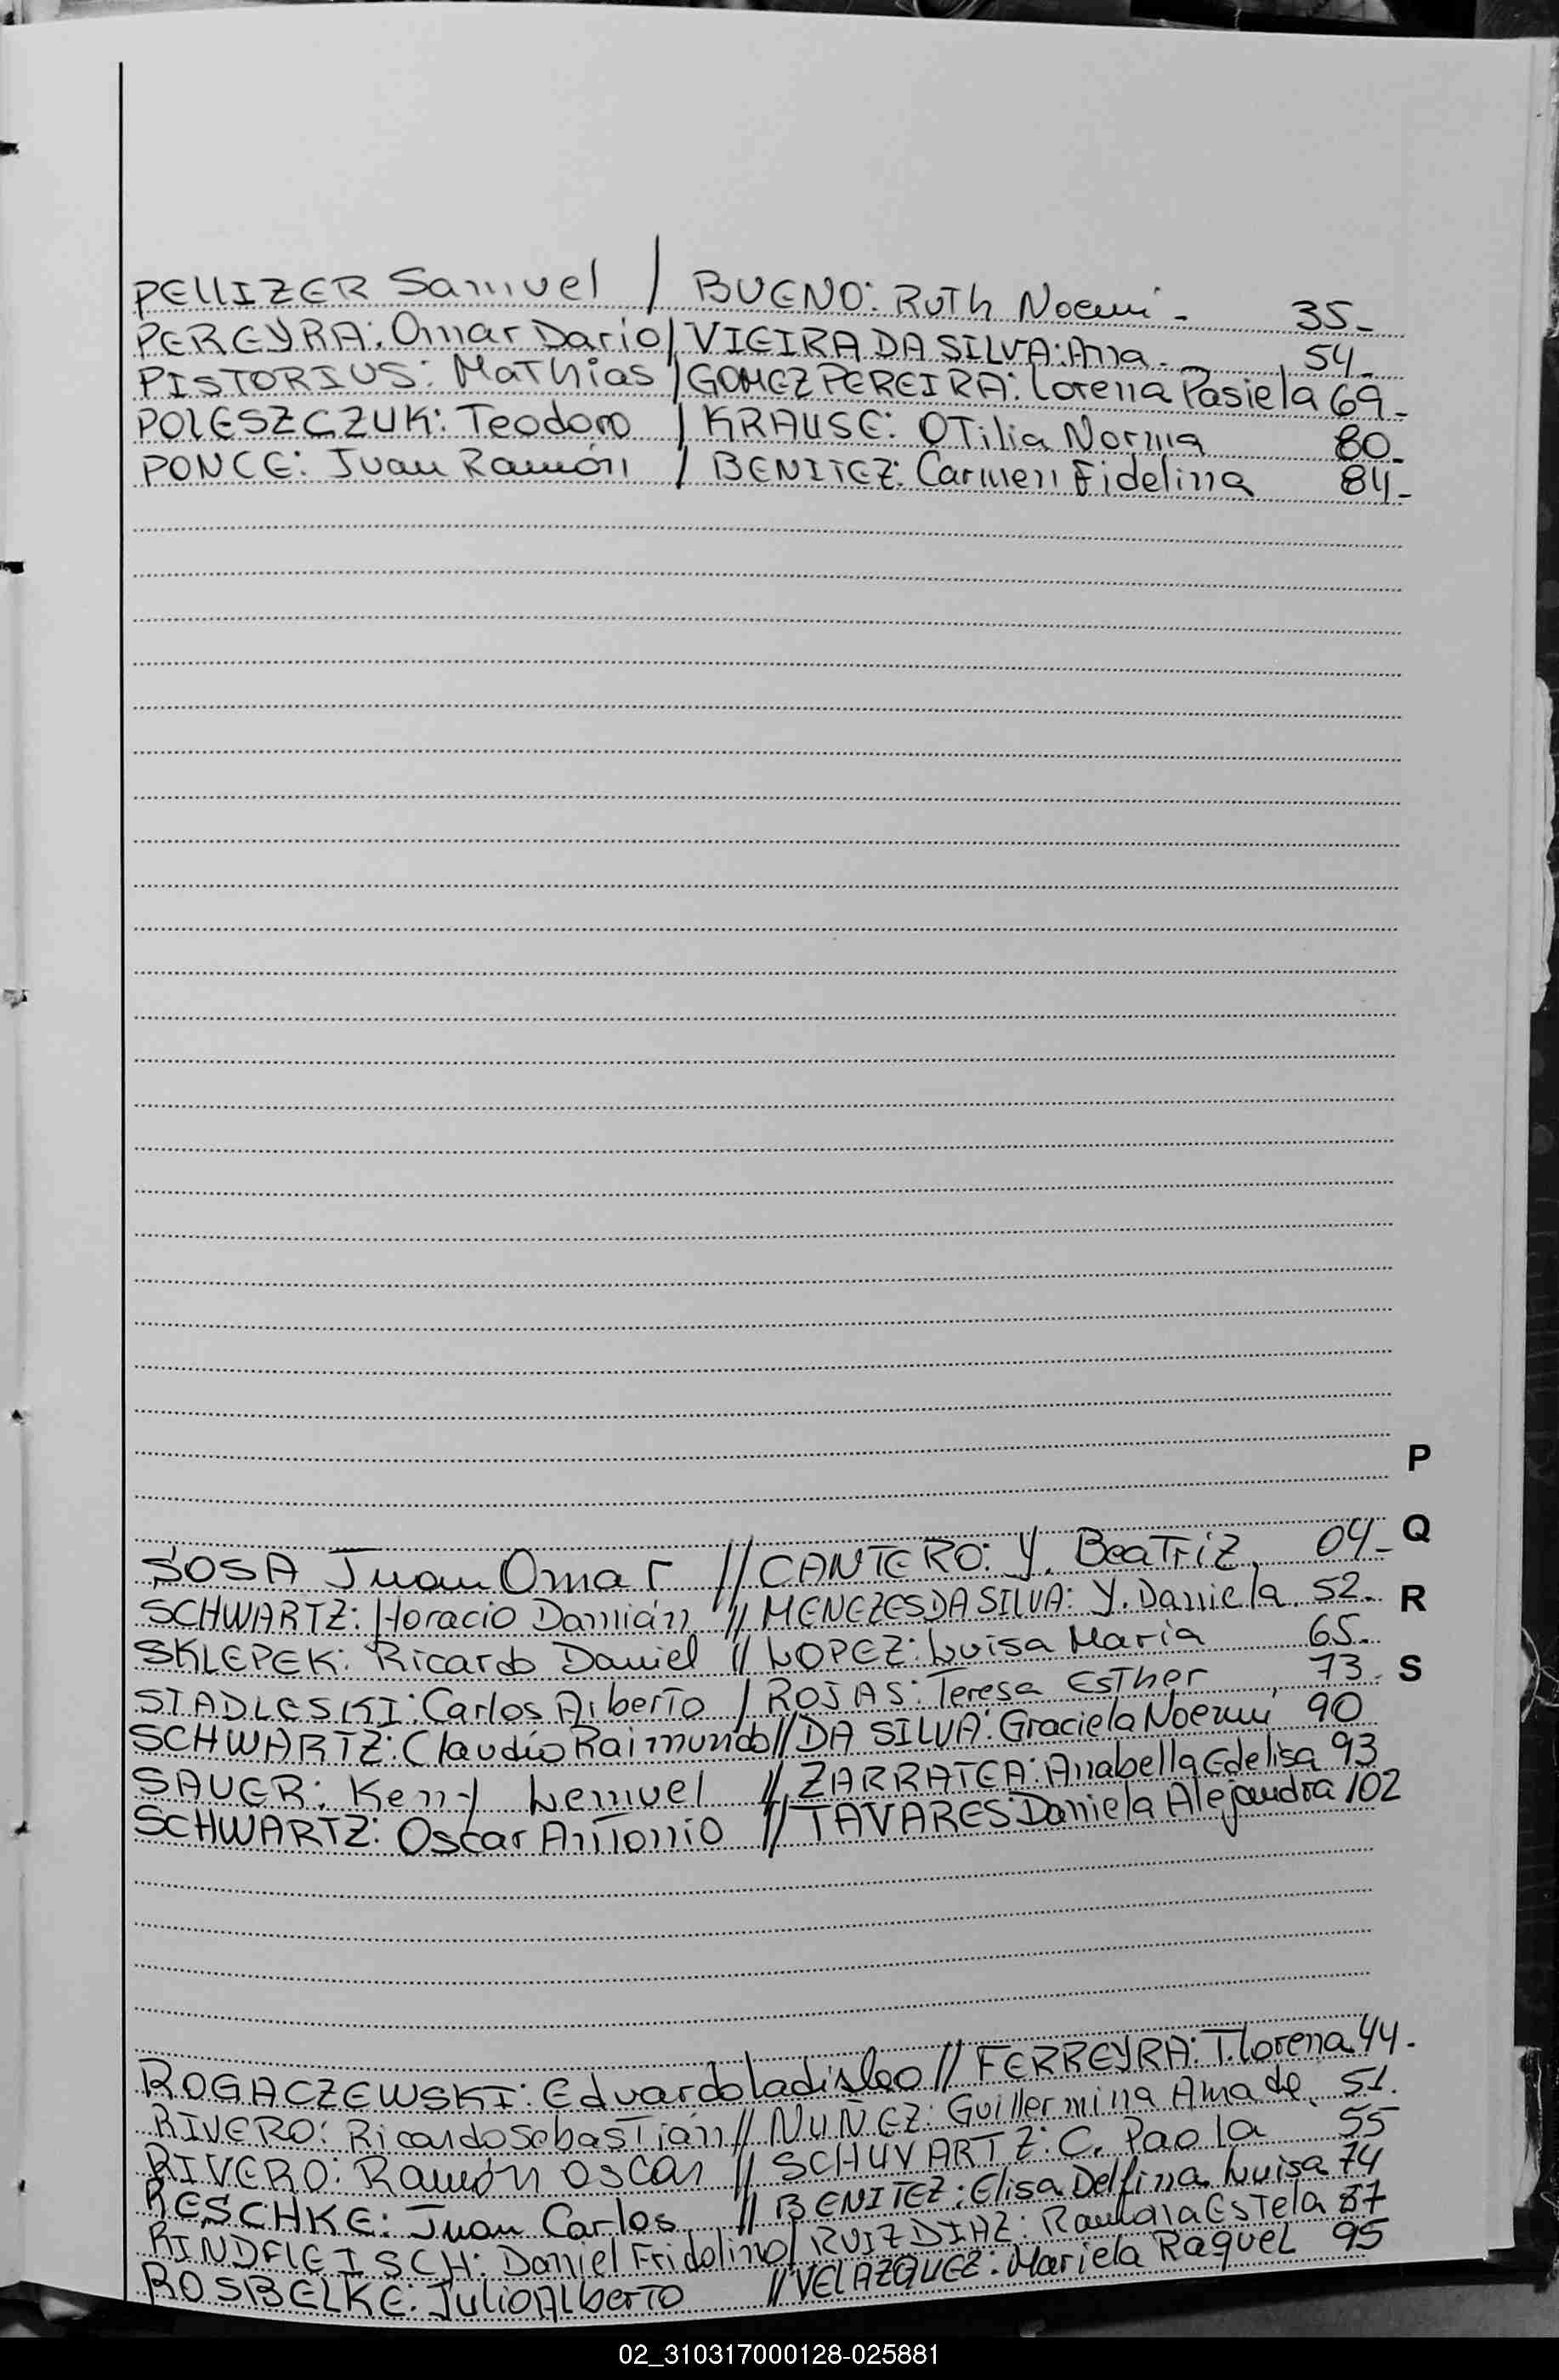 PELLIZER Samuel / BUENO: Ruth Noemi - 35-
PEREYRA: Omar Dario / VIEIRA DA SILVA: Ana. 54-
PISTORIUS: Mathias / GOMEZ PEREIRA: Lorena Pasiela 69-
POLESZCZUK: Teodoro / KRAUSE: OTilia Norma 80-
PONCE: Juan Ramón / BENITEZ: Carmen Fidelina 84-
P
SOSA Juan Omar // CANTERO: Y. BeaTriz, 04- Q
SCHWARTZ: Horacio Damián // MENEZES DA SILVA: Y. Daniela. 52- R
SKLEPEK: Ricardo Daniel // LOPEZ: Luisa Maria 65-
STADLESKI: Carlos AlberTo / ROJAS: Teresa EsTher 73- S
SCHWARTZ: Claudio Raimundo // DA SILVA: Graciela Noemi 90
SAUER: Keny Lemuel // ZARRATEA: Anabella Edelisa 93
SCHWARTZ: Oscar AnTonio // TAVARES: Daniela Alejandra 102
ROGACZEWSKI: Eduardo Ladislao // FERREYRA: T. Lorena 44-
RIVERO: Ricardo SebasTián // NUÑEZ: Guillermina Ama de 51.
RIVERO: Ramón Oscar // SCHUVARTZ: C. Paola 55
RESCHKE: Juan Carlos // BENITEZ: Elisa Delfina Luisa 74
RINDFLEISCH: Daniel Fridolino / RUIZ DIAZ: EsTela 87
ROSBELKE: Julio AlberTo // VELAZQUEZ: Mariela Raquel 95
02_310317000128-025881